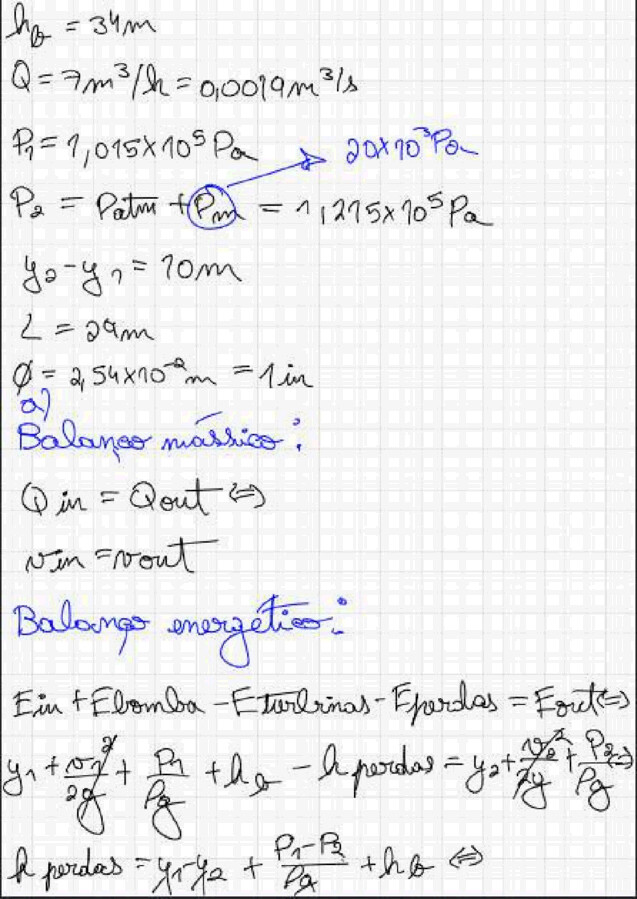 h_b = 34m
Q = 7m³/h = 0,0019m³/s
P₁ = 1,015×10⁵Pa
20×10³Pa
P₂ = Patm + Pm = 1,215×10⁵Pa
y₂-y₁ = 10m
L = 29m
Ø = 2,54×10⁻²m = 1in
a)
Balanço mássico:
Q in = Q out ⇔
vin = vout
Balanço energético:
Ein + Ebomba - Eturbinas - Eperdas = Eout ⇔
y₁ + v₁²/2g + P₁/ρg + h_b - h perdas = y₂ + v₂²/2g + P₂/ρg ⇔
h perdas = y₁-y₂ + (P₁-P₂)/ρg + h_b ⇔